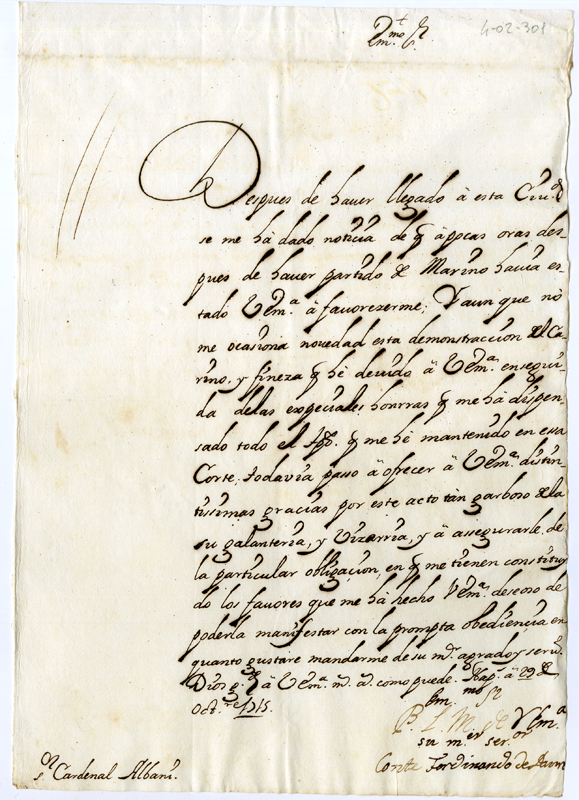 4-02-301
Em.mo S.r
Despues de haver llegado à esta Ciu.d
se me hà dado noticia de q̃ à pocas oras des-
pues de haver partido de Marino havia es-
tado V Em.a à favorezerme; Y aun que nò
me ocasiona novedad esta demonstraccion del Ca-
rino, y fineza q̃ hè devido à V Em.a en segui-
da delas expeciales honrras q̃ me hà dispen-
sado todo el tpõ. q̃ me hè mantenido en essa
Corte, todavia passo à ofrecer à V Em.a distin-
tissimas gracias por este acto tan garboso de la
su galanteria, y vizarria, y à assegurarle de
la particular obligacion, en q̃ me tienen constituy-
do los favores que me hà hecho V Em.a deseoso de
poderla manifestar con la prompta obediencia en
quanto gustare mandarme de su m.r agrado y serv.o
Dios g.e à V Em.a m.s a.s como puede. Nap.s à 29 de
Oct.re 1715.
Em.mo S.r
B. L. M. de V Em.a
su m.er ser.or
Conte Ferdinando de Daun
S.or Cardenal Albani.